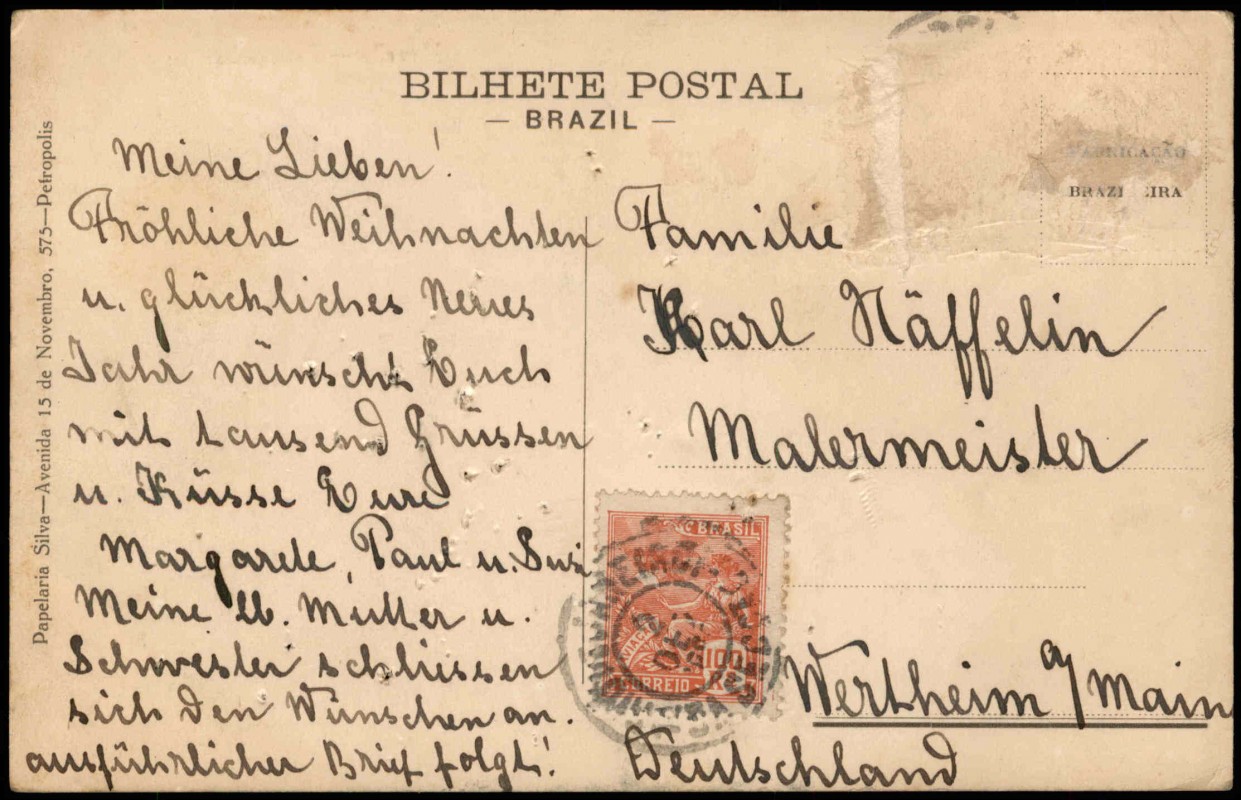 BILHETE POSTAL
— BRAZIL —
Papelaria Silva—Avenida 15 de Novembro, 575—Petropolis
FABRICAÇÃO
BRAZI EIRA
Meine Lieben!
Fröhliche Weihnachten
u. glückliches Neues
Jahr wünscht Euch
mit tausend Grüssen
u. Küsse Eure
Margarete, Paul u. Susi
Meine lb. Mutter u.
Schwester schliessen
sich den Wünschen an.
ausführlicher Brief folgt!
Familie
Karl Häffelin
Malermeister
Wertheim a/Main
Deutschland
BRASIL
VIAÇÃO
100
CORREIO
4
DEZ